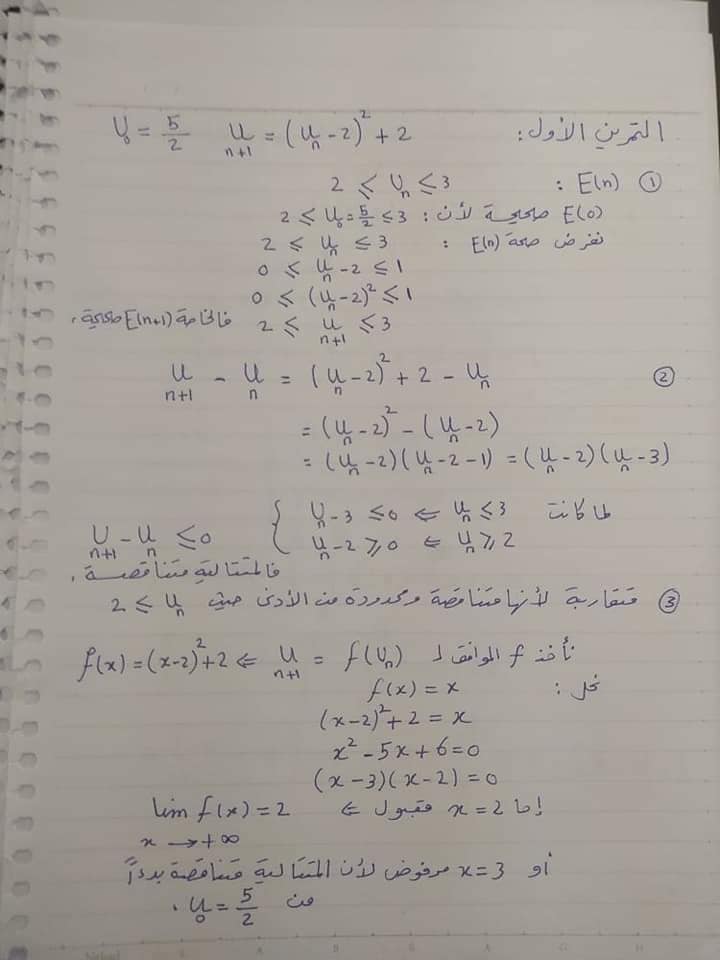 التمرين الأول: U₀ = 5/2   Uₙ₊₁ = (Uₙ - 2)² + 2
① E(n) : 2 ≤ Uₙ ≤ 3
E(0) صحيحة لأن: 2 ≤ U₀ = 5/2 ≤ 3
نفرض صحة E(n) : 2 ≤ Uₙ ≤ 3
0 ≤ Uₙ - 2 ≤ 1
0 ≤ (Uₙ - 2)² ≤ 1
2 ≤ Uₙ₊₁ ≤ 3 فالخاصة E(n+1) صحيحة.
② Uₙ₊₁ - Uₙ = (Uₙ - 2)² + 2 - Uₙ
= (Uₙ - 2)² - (Uₙ - 2)
= (Uₙ - 2)(Uₙ - 2 - 1) = (Uₙ - 2)(Uₙ - 3)
لما كانت { Uₙ ≤ 3 ⇒ Uₙ - 3 ≤ 0
Uₙ ≥ 2 ⇒ Uₙ - 2 ≥ 0   Uₙ₊₁ - Uₙ ≤ 0
فالمتتالية متناقصة.
③ متقاربة لأنها متناقصة ومحدودة من الأدنى حيث 2 ≤ Uₙ
نأخذ f الموافق لـ Uₙ₊₁ = f(Uₙ) ⇐ f(x) = (x-2)² + 2
نحل : f(x) = x
(x-2)² + 2 = x
x² - 5x + 6 = 0
(x - 3)(x - 2) = 0
إما x = 2 مقبول ⇐ lim f(x) = 2
x → +∞
أو x = 3 مرفوض لأن المتتالية متناقصة بدءاً
من U₀ = 5/2 .